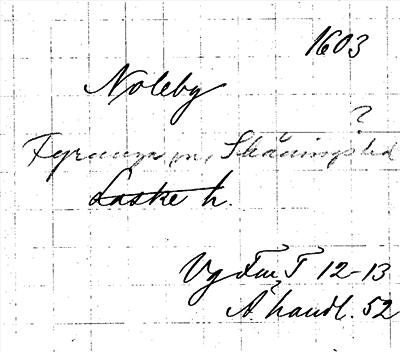 1603
Noleby
?
Fyrunga sn, Skåningshd
Laske h.
Vg Fm T 12-13
Ä handl. 52